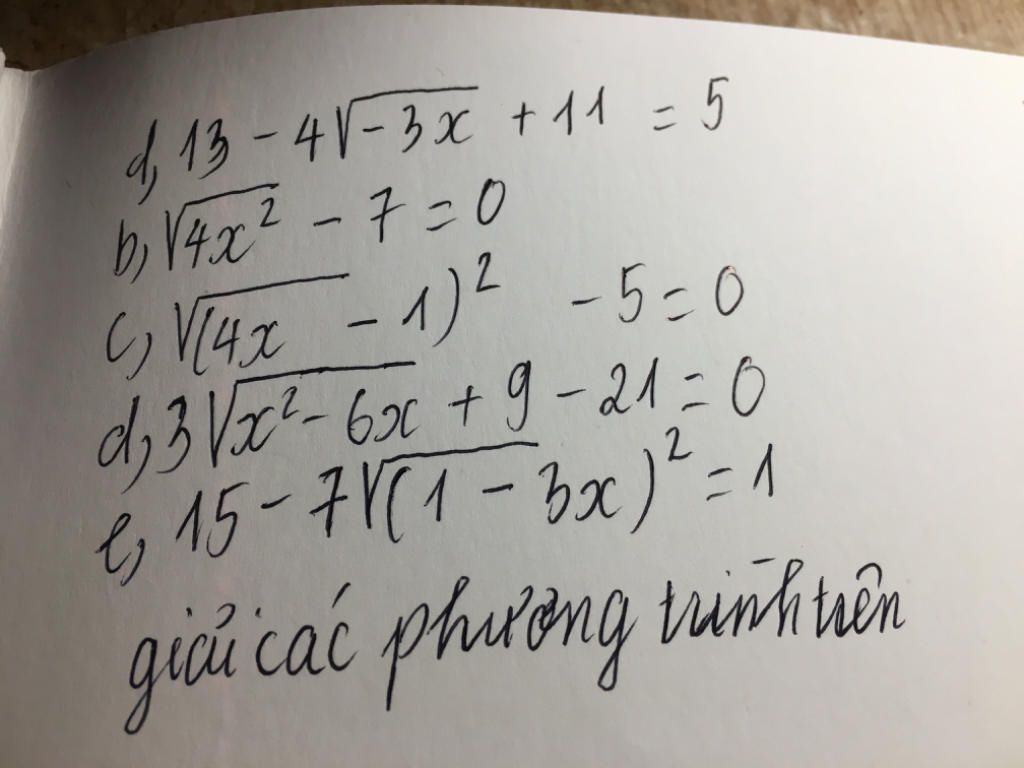 d, 13 - 4√-3x + 11 = 5
b, √4x² - 7 = 0
c, √(4x - 1)² - 5 = 0
d, 3√x² - 6x + 9 - 21 = 0
e, 15 - 7√(1 - 3x)² = 1
giải các phương trình trên